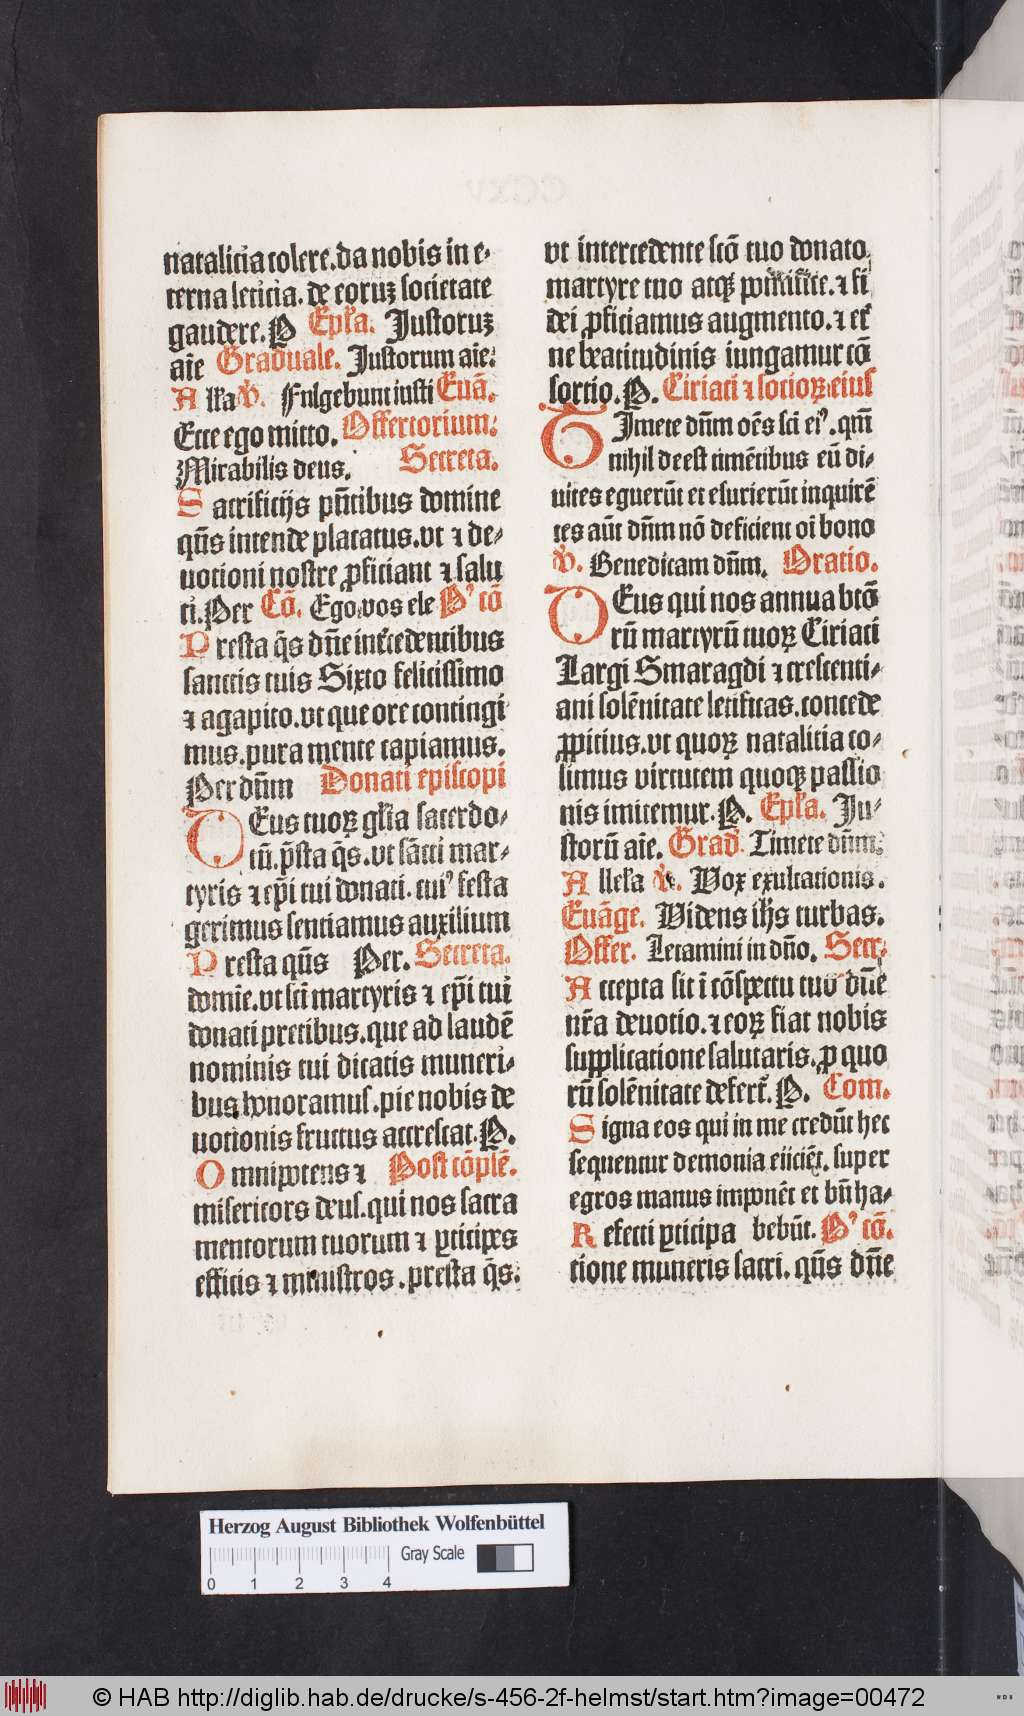 natalicia colere. da nobis in e-
terna leticia. de eoruꝫ societate
gaudere. P Epl'a. Justoruꝫ
aīe Graduale. Justorum aīe:
All'a V̓. Fulgebunt iusti Euā.
Ecce ego mitto. Offertorium:
Mirabilis deus. Secreta.
Sacrificijs pn̄tibus domine
qūs intende placatus. vt ⁊ de-
uotioni nostre ꝓficiant ⁊ salu
ti. Per Cō. Ego vos ele P' cō
Presta q̄s dn̄e int̄cedentibus
sanctis tuis Sixto felicissimo
⁊ agapito. vt que ore contingi
mus. pura mente capiamus.
Per dn̄m Donati episcopi
DEus tuoꝝ gl'ia sacerdo-
tū. p̄sta q̄s. vt sācti mar-
tyris ⁊ ep̄i tui donati. cui' festa
gerimus sentiamus auxilium
Presta qūs Per. Secreta.
domīe. vt sc̄i martyris ⁊ ep̄i tui
donati precibus. que ad laudē
nominis tui dicatis muneri-
bus honoramus. pie nobis de
uotionis fructus accrescat. P.
Omnipotens ⁊ Post cōplē.
misericors deus. qui nos sacra
mentorum tuorum ⁊ ꝑticipes
efficis ⁊ ministros. presta q̄s:
vt intercedente scō tuo donato
martyre tuo atqꝫ pontifice. ⁊ fi
dei ꝓficiamus augmento. ⁊ et̄
ne beatitudinis iungamur cō
sortio. P. Ciriaci ⁊ socioꝝ eius
TImete dn̄m oēs sc̄i ei'. qm̄
nihil deest timētibus eū di-
uites eguerūt et esurierūt inquirē
tes aūt dn̄m nō deficient oī bono
V̓. Benedicam dn̄m. Oratio.
DEus qui nos annua btō
rū martyrū tuoꝝ Ciriaci
Largi Smaragdi ⁊ crescenti-
ani solēnitate letificas. concede
ꝓpitius. vt quoꝝ natalitia co-
limus virtutem quoqꝫ passio
nis imitemur. P. Epl'a. Ju-
storū aīe. Grad̄ Timete dn̄m:
Allel'a V̓. Vox exultationis.
Euāge. Videns ih̄s turbas.
Offer. Letamini in dn̄o. Secr̄
Accepta sit ī cōspectu tuo dn̄e
nr̄a deuotio. ⁊ eoꝝ fiat nobis
supplicatione salutaris. ꝓ quo
rū solēnitate defert̄. P. Com.
Signa eos qui in me credūt hec
sequentur demonia eiiciēt. super
egros manus imponēt et bn̄ ha-
Refecti ꝑticipa bebūt. P' cō.
tione muneris sacri. qūs dn̄e
Herzog August Bibliothek Wolfenbüttel
Gray Scale
0 1 2 3 4
© HAB http://diglib.hab.de/drucke/s-456-2f-helmst/start.htm?image=00472